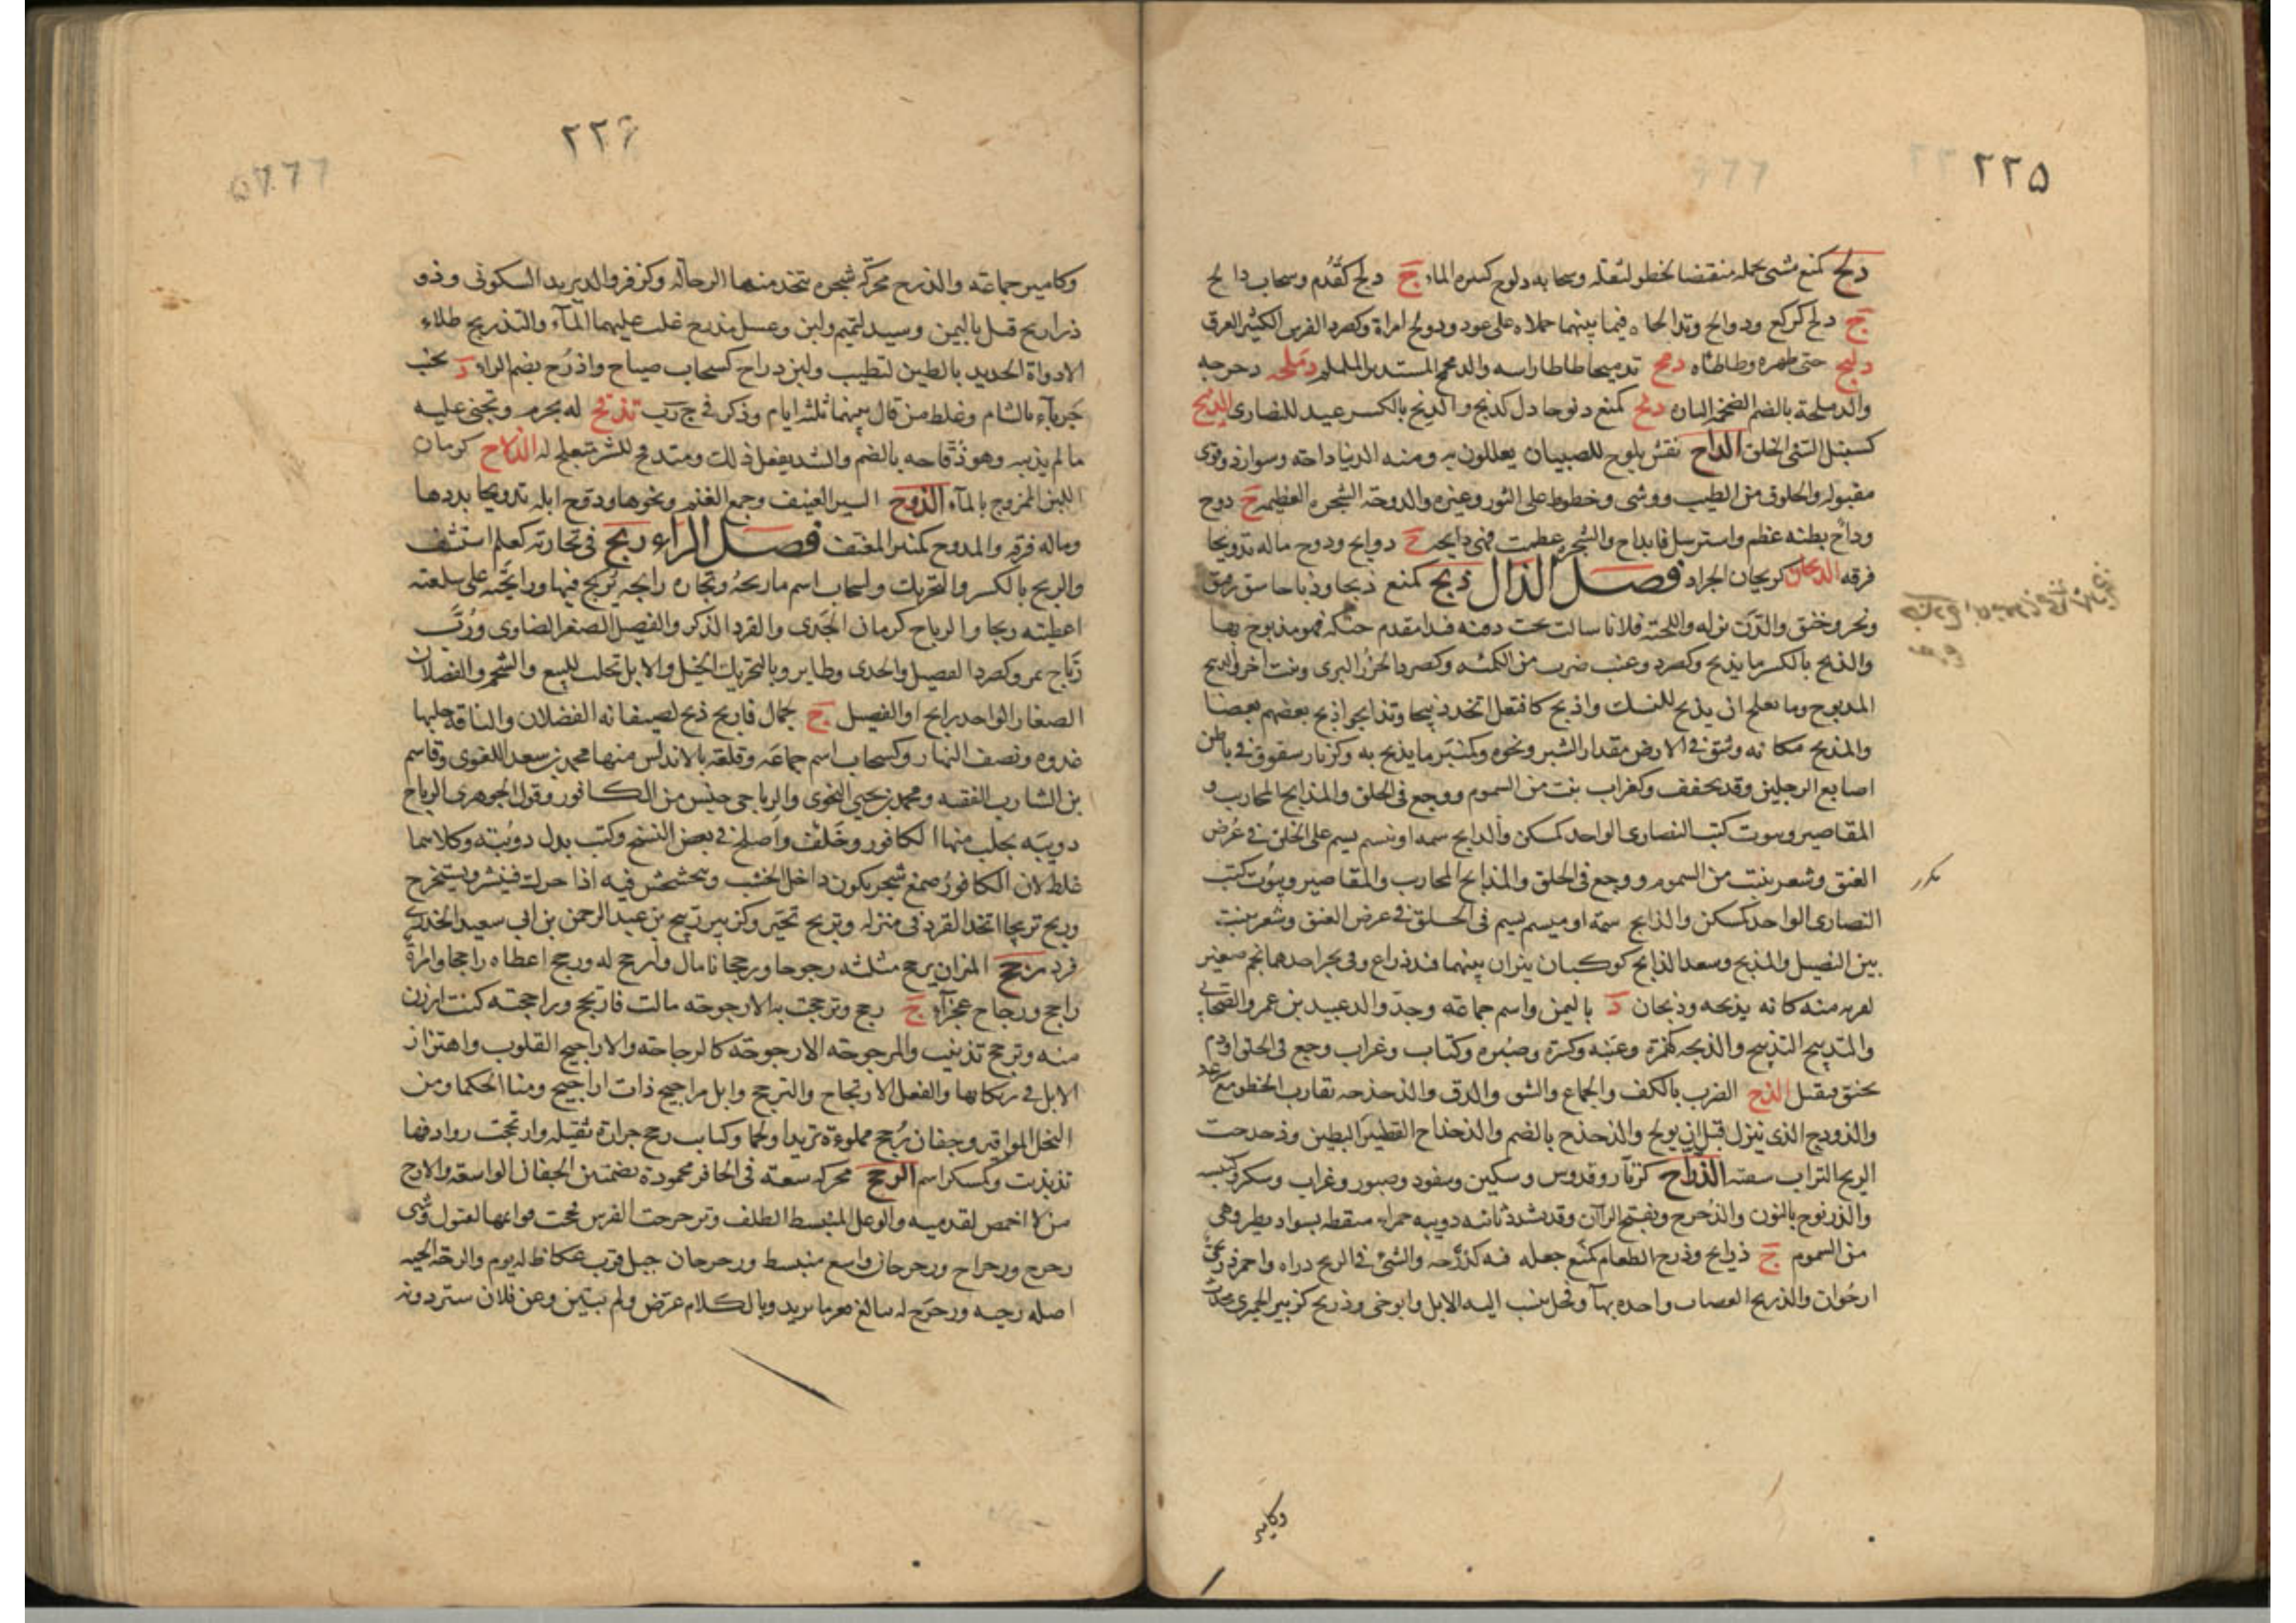 ٢٢٥
دلح كمنع مشى بحمله منقبضا لخطو لثقله وسحابه دلوح كثيره الماء ج دلح كقُدُم وسحاب دالح
ج دلح كركع ودوالح وتدالحاه فيما بينهما حملاه على عود ودولح امراة وكصرد الفرس الكثير العرق
دلبح حتى ظهره وطاطاه دمح تدميحا طاطا راسه والدمحمح المستدير الململم دملحه دحرجه
والدملحة بالضم الضخمة التارة دنح كمنع دنوحا ذل كدنح والدنح بالكسر عيد للنصارى الدنبح
كسنبل السّئ الخلق الداح نقش يلوح للصبيان يعللون به ومنه الدنيا داحه وسوار ذو قوى
مفتوله والخلوق من الطيب ووشى وخطوط على الثور وغيره والدوحة الشجره العظيمه ج دوح
وداح بطنه عظم واسترسل فانداح والشجره عظمت فهى دايحه ج دوايح ودوح ماله تدويحا
فرقه الديحان كريحان الجراد فصل الذال ذبح كمنع ذبحا وذباحا شق وفتق
ونحر وخنق والدّن بزله واللحية فلانا سالت تحت ذقنه فبدا مقدم حنكه فهو مذبوح بها
والذبح بالكسر ما يذبح وكصرد وعنب ضرب من الكماه وكصرد الجزر البرى ونبت اخر والذبيح
المذبوح وما يصلح ان يذبح للنسك واذبح كافتعل اتخذ ذبيحا وتذابحوا ذبح بعضهم بعضا
والمذبح مكانه وشق فى الارض مقدار الشبر ونحوه وكمنبر ما يذبح به وكزنار شقوق فى باطن
اصابع الرجلين وقد يخفف وكغراب نبت من السموم ووجع فى الحلق والمذابح المحاريب و
المقاصير وبيوت كتب النصارى الواحد كمسكن والذابح سمه او ميسم يسم على الحلق فى عُرض
العنق وشعر ينبت من السموم ووجع فى الحلق والمذابح المحاريب والمقاصير وبيُوت كتب
مكرر
النصارى الواحد كمسكن والذابح سمة او ميسم يسم فى الحلق فى عرض العنق وشعر ينبت
بين النصيل والمذبح وسعد الذابح كوكبان نيران بينهما قيد ذراع وفى نحر احدهما نجم صغير
لقربه منه كانه يذبحه وذبحان د باليمن واسم جماعة وجدّ والد عبيد بن عمرو الصحابى
والتذبيح التدبيح والذبحه كهمزة وعنبه وكسرة وصبره وكتاب وغراب وجع فى الحلق او دم
يخنق فيقتل الذح الضرب بالكف والجماع والشق والدق والذحذحه تقارب الخطو مع سرعه
والذوذح الذى ينزل قبل ان يولج والذحذح بالضم والذحذاح القصير البطين وذحذحت
الريح التراب سفته الذراح كزنّار وقدوس وسكين وسفود وصبور وغراب وسكر وكنيسه
والذرنوح بالنون والذرحرح وبفتح الراآن وقد يشدد ثانيه دويبه حمراء منقطه بسواد يطير وهى
من السموم ج ذراريح وذرح الطعام كمنع جعله فيه كذرّحه والشئ فى الريح ذراه واحمر ذريحى
ارجُوان والذريح الهضاب واحده بهآ وفحل ينسب اليه الابل وابو حى وذريح كزبير الحميرى محدث
وكامير
٢٢٦
وكامير جماعة والذرح محركه شجره تتخذ منها الرحاله وكزفر والد يزيد السكونى وذو
ذراريح قيل باليمن وسيد لتميم ولبن وعسل مذرح غلب عليهما المآء والتذريح طلاء
الاداوة الجديد بالطين لتطيب ولبن ذراح كسحاب ضياح واذرُح بضم الراء د بجنب
جرباء بالشام وغلط من قال بينهما ثلثه ايام وذكر فى ج رب تذقح له تجرم وتجنى عليه
ما لم يذنبه وهو ذُقّاحه بالضم والشد يفعل ذلك ومتذقح للشر متعلج له الذلاح كرمان
اللبن الممزوج بالمآء الذوح السير العنيف وجمع الغنم ونحوها وذوح ابله تذويحا بددها
وماله فرقه والمذوح كمنبر المعنف فصل الراء ربح فى تجارته كعلم استشف
والربح بالكسر والتحريك وكسحاب اسم ما ربحهُ وتجاره رابحه يُربح فيها ورابحته على سلعته
اعطيته ربحا والرباح كرمان الجَدى والقرد الذكر والفصيل الصغير الضاوى وزُبّ
رُبّاح تمر وكصرد الفصيل والجدى وطاير وبالتحريك الخيل والابل تجلب للبيع والشحم والفصلان
الصغار الواحد رابح او الفصيل ج جمال فاربح ذبح لضيفانه الفصلان والناقة حلبها
غدوه ونصف النهار وكسحاب اسم جماعه وقلعة بالاندلس منها محمد بن سعد اللغوى وقاسم
بن الشارب الفقيه ومحمد بن يحيى النحوى والرباحى جنس من الكافور وقول الجوهرى الرباح
دويبّه يجلب منها الكافور وخَلف واُصلح فى بعض النسخ وكتب بدل دويّبة وكلاهما
غلط لان الكافور صمغ شجر يكون داخل الخشب ويتخشخش فيه اذا حرك فينشر ويستخرج
وربح تربيحا اتخذ القرد فى منزله وتربح تحيّر وكزبير ربيح بن عبد الرحمن بن ابى سعيد الخدرى
فرد رجح الميزان يرجح مثلثه رجوحا ورجحانا مال وارجح له ورجح اعطاه راجحا وامراة
راجح ورجاح عجزآء ج رجح وترجحت به الارجوحه مالت فارتجح وراجحته كنت ارزن
منه وترجح تذبذب والمرجوحه الارجوحه كالرجاحه والاراجيح القلوب واهتزاز
الابل فى رتكانها والفعل الارتجاح والترجح وابل مراجيح ذات اراجيح ومنا الحكما ومن
النخل المواقير وجفان رُجح مملوءة ثريدا ولحما وكتايب رجح جرارة ثقيله وارتجحت روادفها
تذبذبت وكمسكر اسم الرحح محركه سعه فى الحافر محمودة بضمتين الجفان الواسعه والارح
من لا اخمص لقدميه والوعل المنبسط الظلف وترحرحت الفرس فحجت قوايمها لتبول وشى
رحرح ورحراح ورحرحان واسع منبسط ورحرحان جبل قرب عكاظ له يوم والرحّه الحيه
اصله رحيه ورحرح له يبالغ قعر ما يريد وبالكلام عرّض ولم يبين وعن فلان ستر دونه